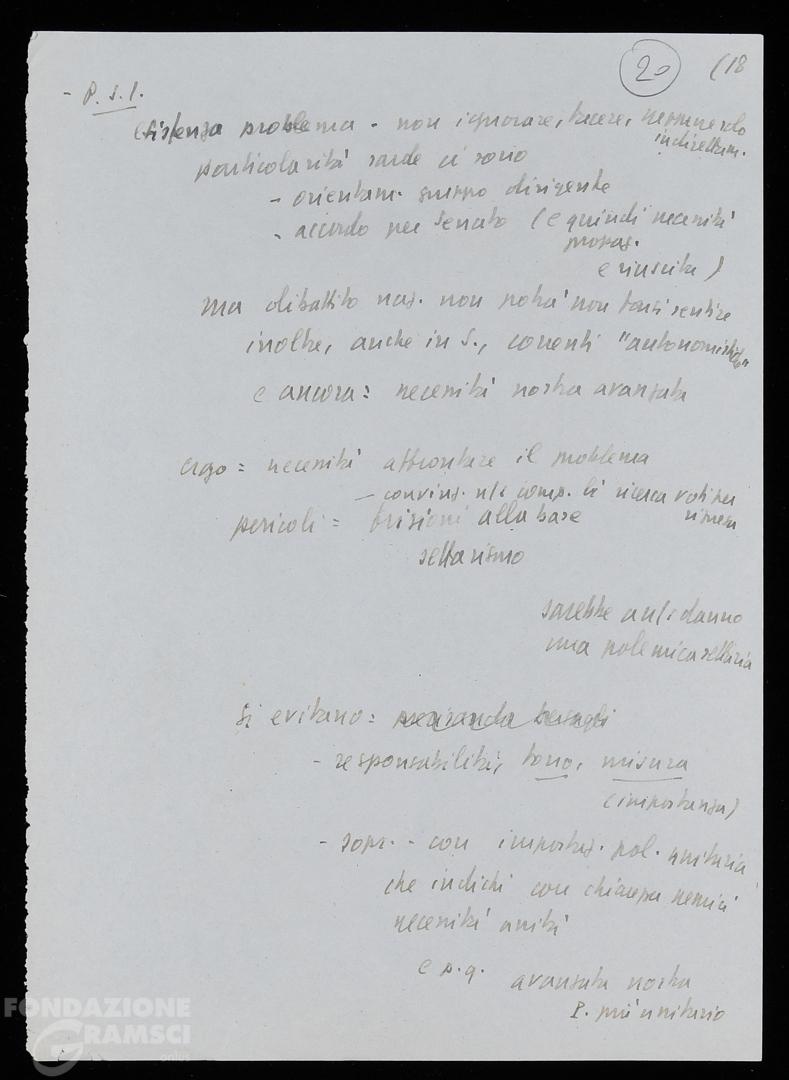 20 (18
- P.S.I.
esistenza problema - non ignorare, tacere, nemmeno
indirettam.
particolarità sarde ci sono
- orientam. gruppo dirigente
- accordo per Senato (e quindi necessità
propag.
e riuscita)
ma dibattito naz. non potrà non farsi sentire
inoltre, anche in S., correnti "autonomistiche"
e ancora: necessità nostra avanzata
ergo = necessità affrontare il problema
- convinz. n/s comp. di ricerca voti per
pericoli = frizioni alla base
settarismo
sarebbe anzi danno
una polemica settaria
si evitano:
- responsabilità, tono, misura
(importanza)
- sopr. - con impostaz. pol. unitaria
che indichi con chiarezza nemici
necessità unità
e p.q. avanzata nostra
P. più unitario
FONDAZIONE
GRAMSCI
onlus